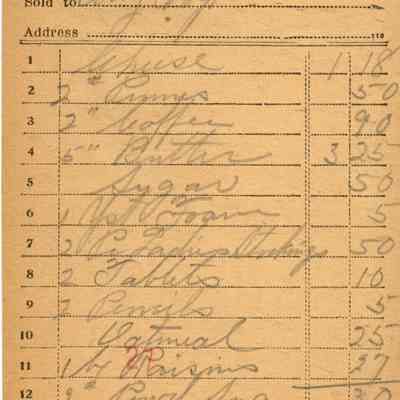 Sold to
Address
1 Cheese 1 18
2 2 " Prunes 50
3 2 " Coffee 90
4 5 " Butter 3 25
5 Sugar 50
6 1 Yst Foam 5
7 2 Pr Ladies Stockings 50
8 2 Tablets 10
9 2 Pencils 5
10 Oatmeal 25
11 1 Raisins 27
12